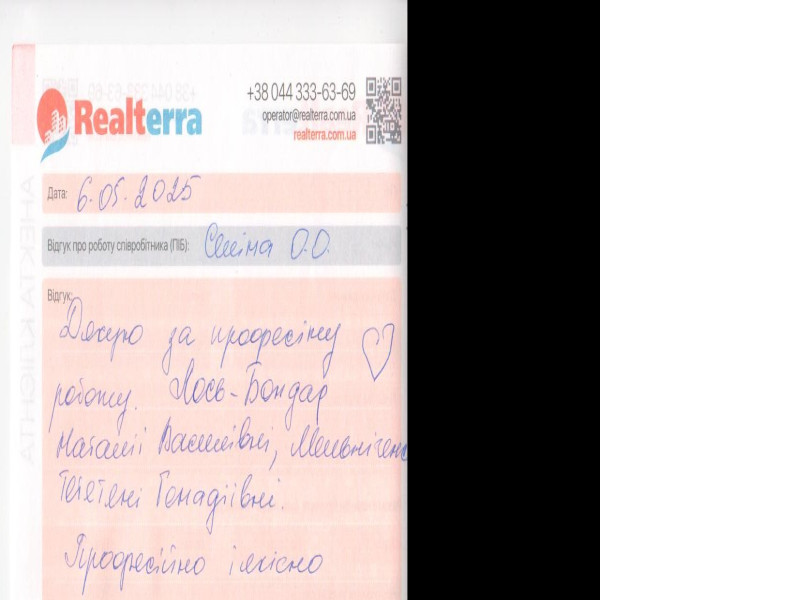 +38 044 333-63-69
operator@realterra.com.ua
Realterra
realterra.com.ua
Дата: 6.05.2025
Відгук про роботу співробітника (ПІБ): О.О.
Відгук:
Дякую за професійну
роботу. Лось-Бондар
Наталії Василівні,
Тетяні Генадіївні.
Професійно і якісно
АНКЕТА КЛІЄНТА